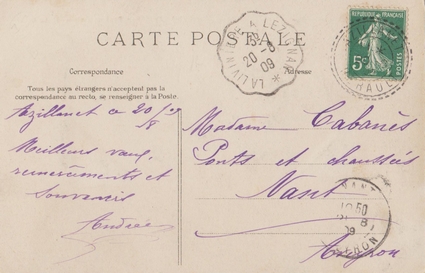 CARTE POSTALE
LA LIVINIÈRE A LÉZIGNAN
20-8
09
REPUBLIQUE FRANÇAISE
5c
POSTES
HAUL
Correspondance
Adresse
Tous les pays étrangers n'acceptent pas la
correspondance au recto, se renseigner à la Poste.
Azillanet le 20/8 09
Meilleurs vœux,
remerciements et
souvenirs
Andrée
Madame Cabanès
Ponts et chaussées
Nant
Aveyron
NANT
10 50
21-8
09
AVEYRON